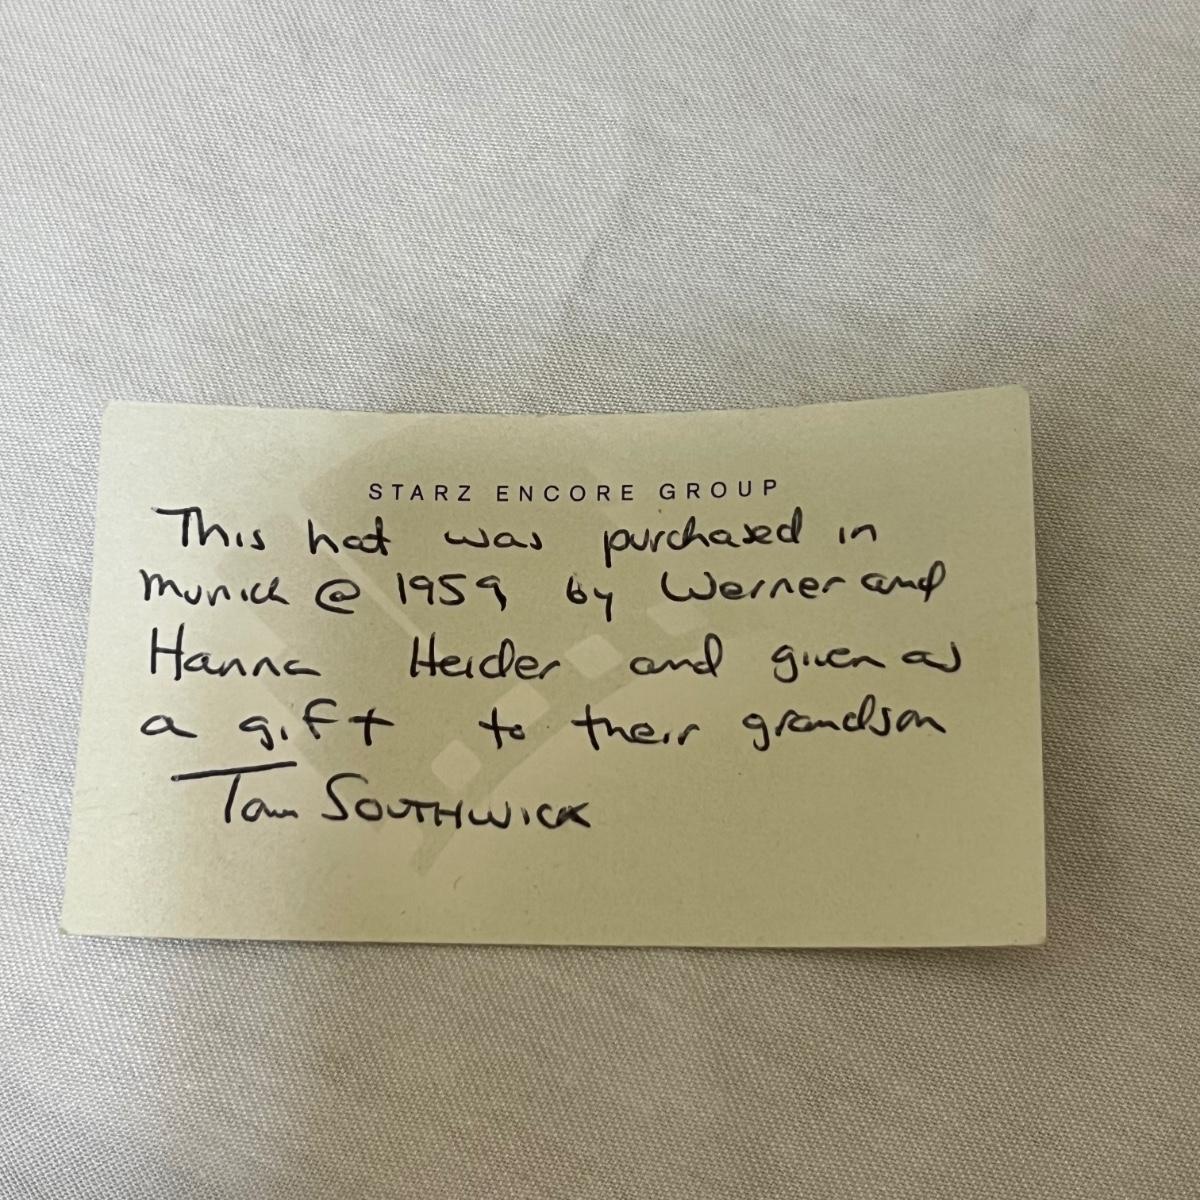 STARZ ENCORE GROUP
This hat was purchased in
Munich @ 1959 by Werner and
Hanna Heider and given as
a gift to their grandson
Tom SOUTHWICK